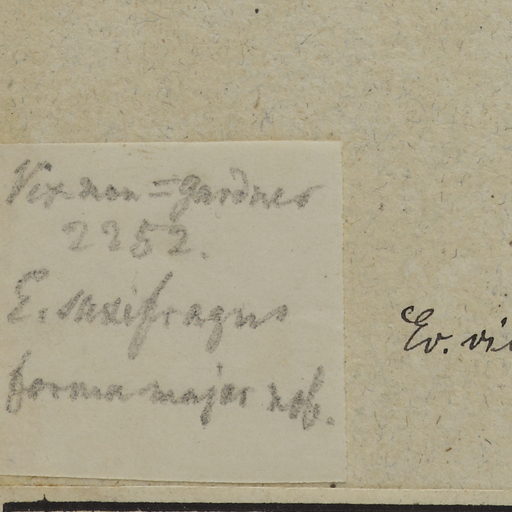 Vix non = Gardner
2252.
E. saxifragus
forma major nob.
Ev. vi